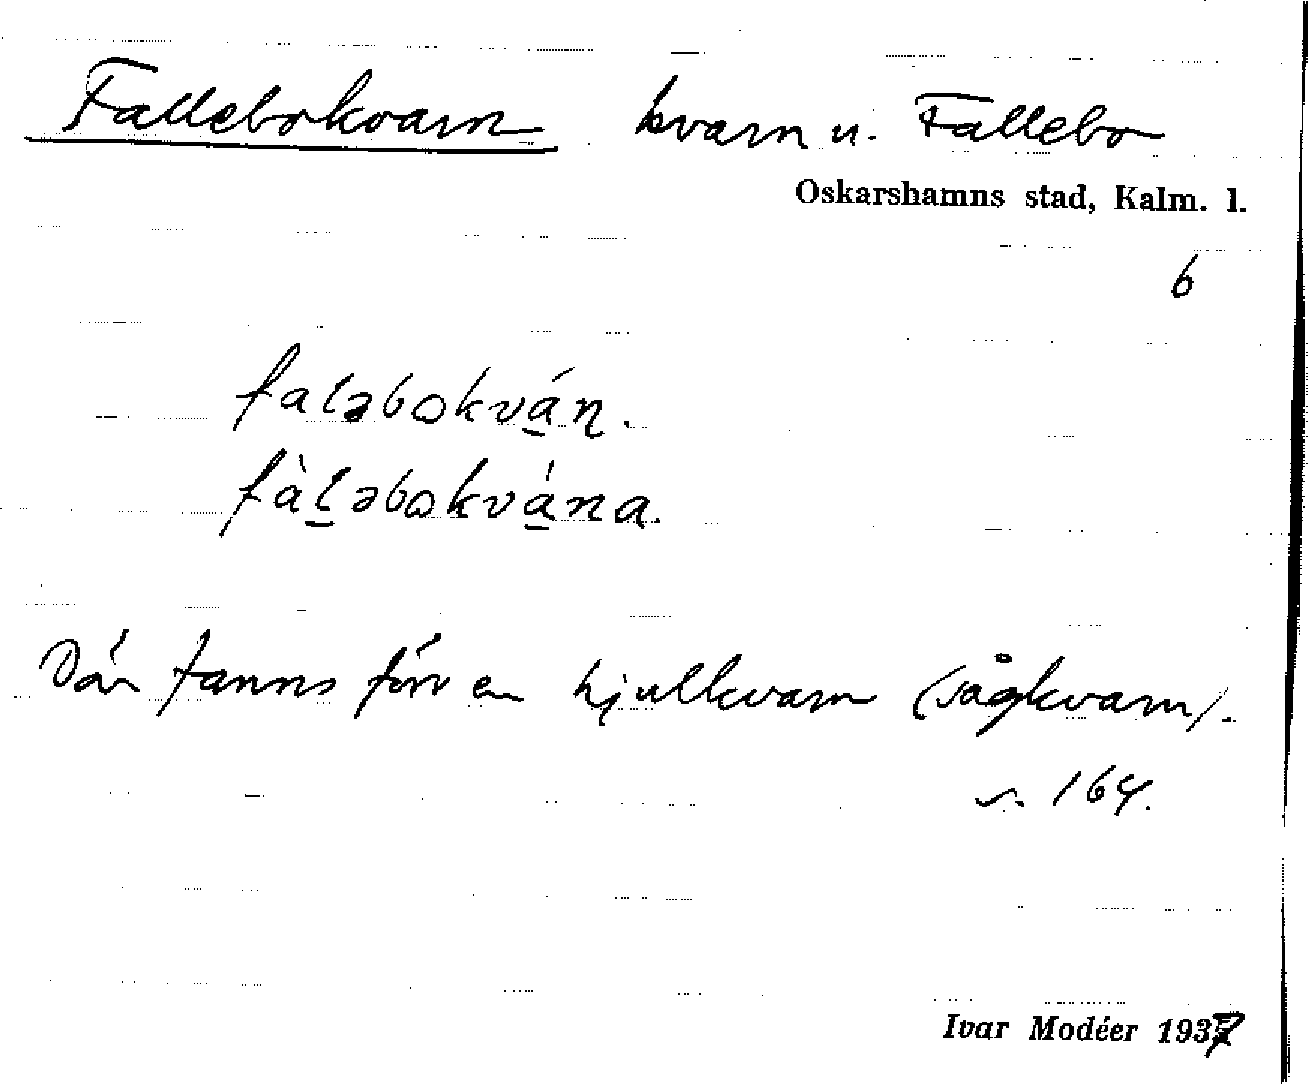 Fallebokvarn kvarn u. Fallebo
Oskarshamns stad, Kalm. l.
6
faləbokván.
fàləbokvána.
Där fanns förr en hjulkvarn (sågkvarn).
s. 164.
Ivar Modéer 1937